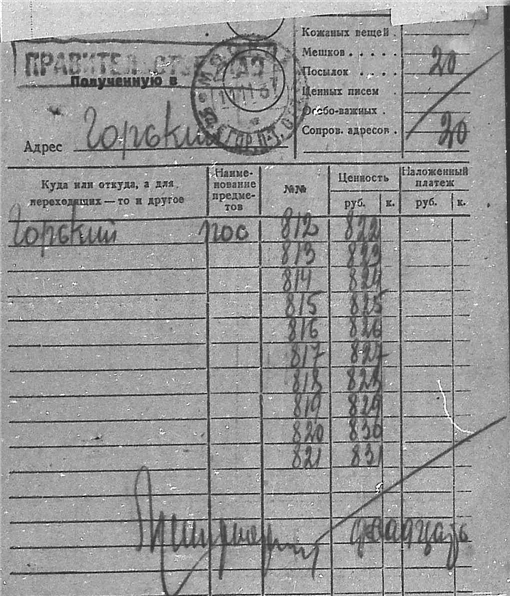 Кожаных вещей
Мешков . . . . .
Посылок . . . . 20
Ценных писем
Особо-важных .
Сопров. адресов . 20
ПРАВИТЕЛ
Полученную в
МОСКВА
Адрес Горский
Куда или откуда, а для переходящих—то и другое Наиме-нование предме-тов №№ Ценность руб. к. Наложенный платеж руб. к.
Горский пос 812 822
813 823
814 824
815 825
816 826
817 827
818 828
819 829
820 830
821 831
двадцать